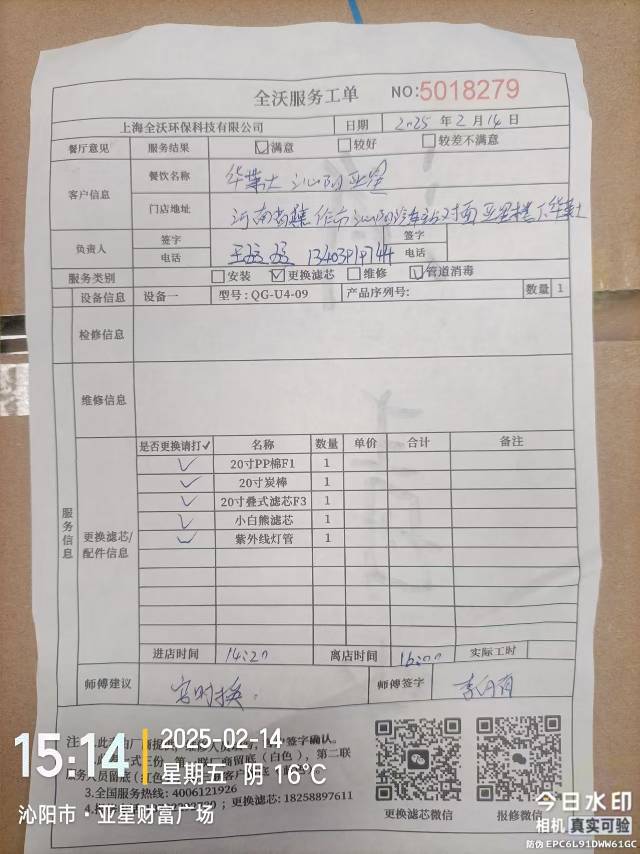 全沃服务工单 NO:5018279
上海全沃环保科技有限公司 日期 2025 年 2 月 14 日
餐厅意见 服务结果 满意 较好 较差不满意
客户信息 餐饮名称 华莱士 沁阳亚星
门店地址 河南省焦作市沁阳汽车站对面亚星楼下华莱士
负责人 签字 签字
电话 电话
服务类别 安装 更换滤芯 维修 管道消毒
设备信息 设备一 型号: QG-U4-09 产品序列号: 数量 1
检修信息
维修信息
服务信息
更换滤芯/配件信息
是否更换请打✓ 名称 数量 单价 合计 备注
✓ 20寸PP棉F1 1
✓ 20寸炭棒 1
✓ 20寸叠式滤芯F3 1
✓ 小白熊滤芯 1
✓ 紫外线灯管 1
进店时间 14:20 离店时间 16:00 实际工时
师傅建议 定时换. 师傅签字
签字确认。
厂商留底(白色), 第二联
服务人员留底(红色
3.全国服务热线: 4006121926
更换滤芯: 18258897611
更换滤芯微信 报修微信
15:14 2025-02-14
星期五·阴 10℃
沁阳市·亚星财富广场
今日水印
相机 真实可验
防伪 EPC6L91DWW61GC